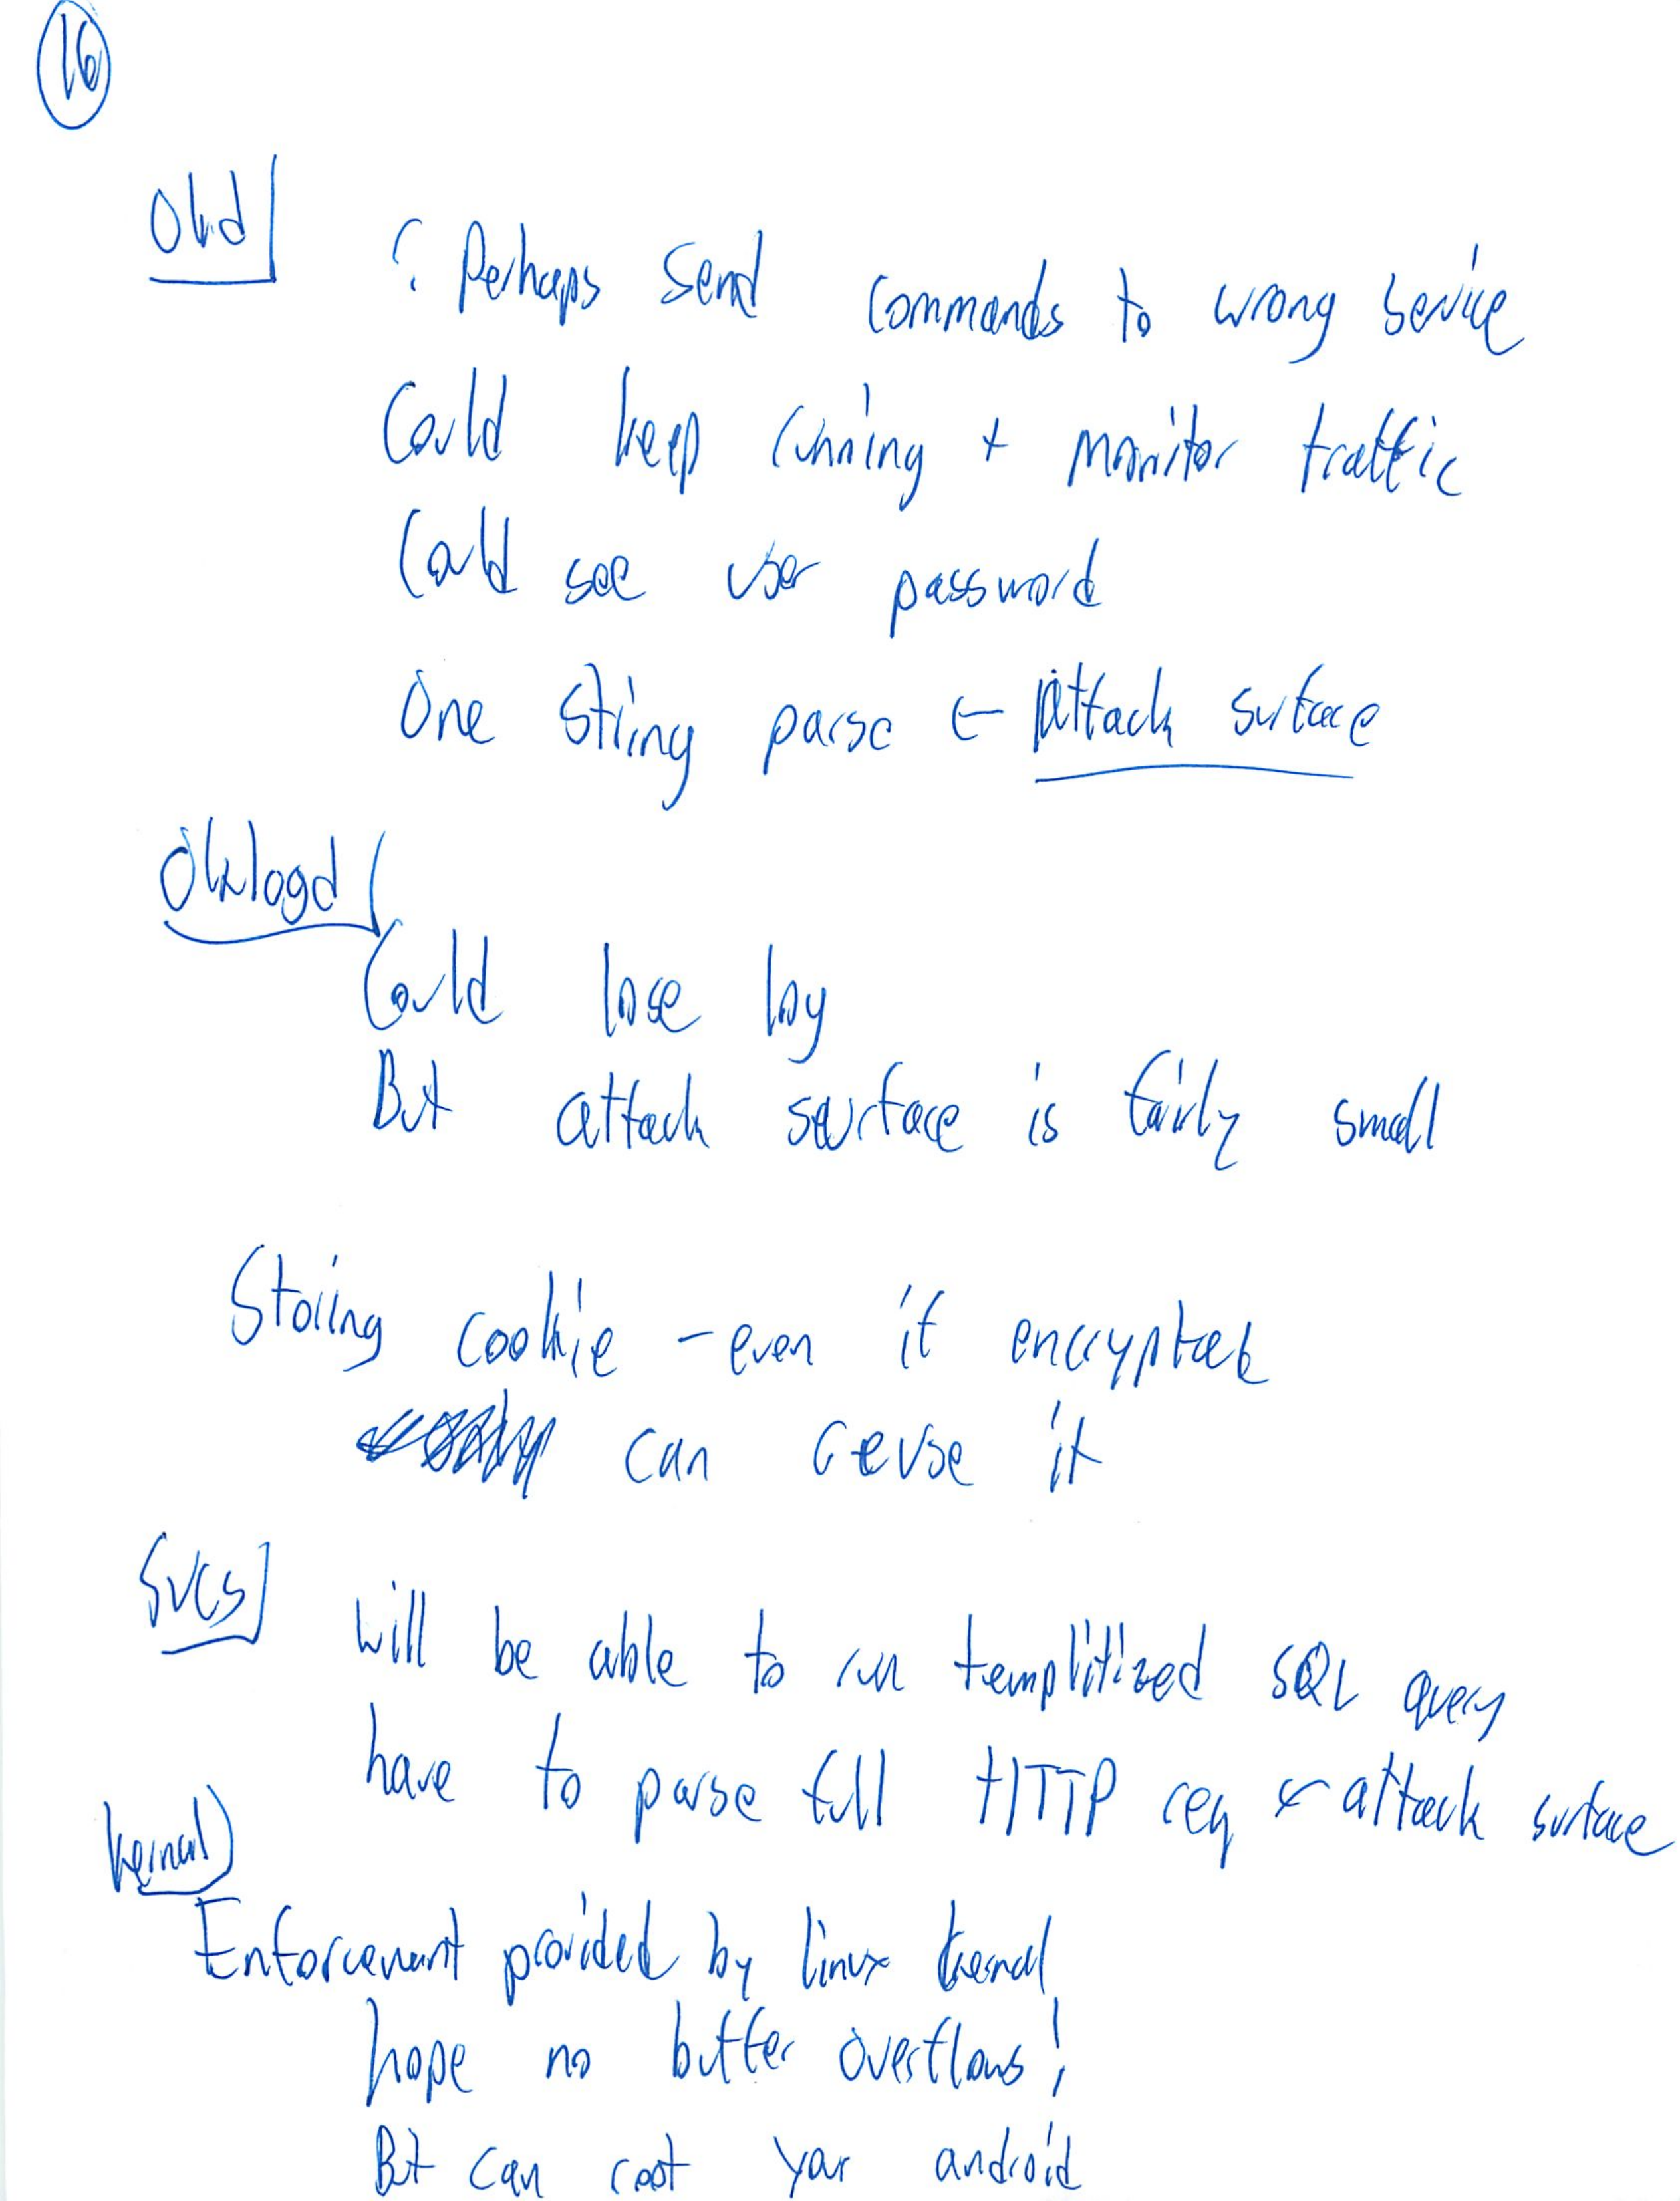 16
Okd
? Perhaps send commands to wrong service
Could keep running + monitor traffic
Could see user password
One string parse ← Attack surface
Oklogd
Could lose log
But attack surface is fairly small
Storing cookie - even if encrypted
can reuse it
Svcs
will be able to run templitized SQL query
have to parse full HTTP req ← attack surface
kernal
Enforcement provided by linux kernal
hope no buffer overflows!
But can root your android